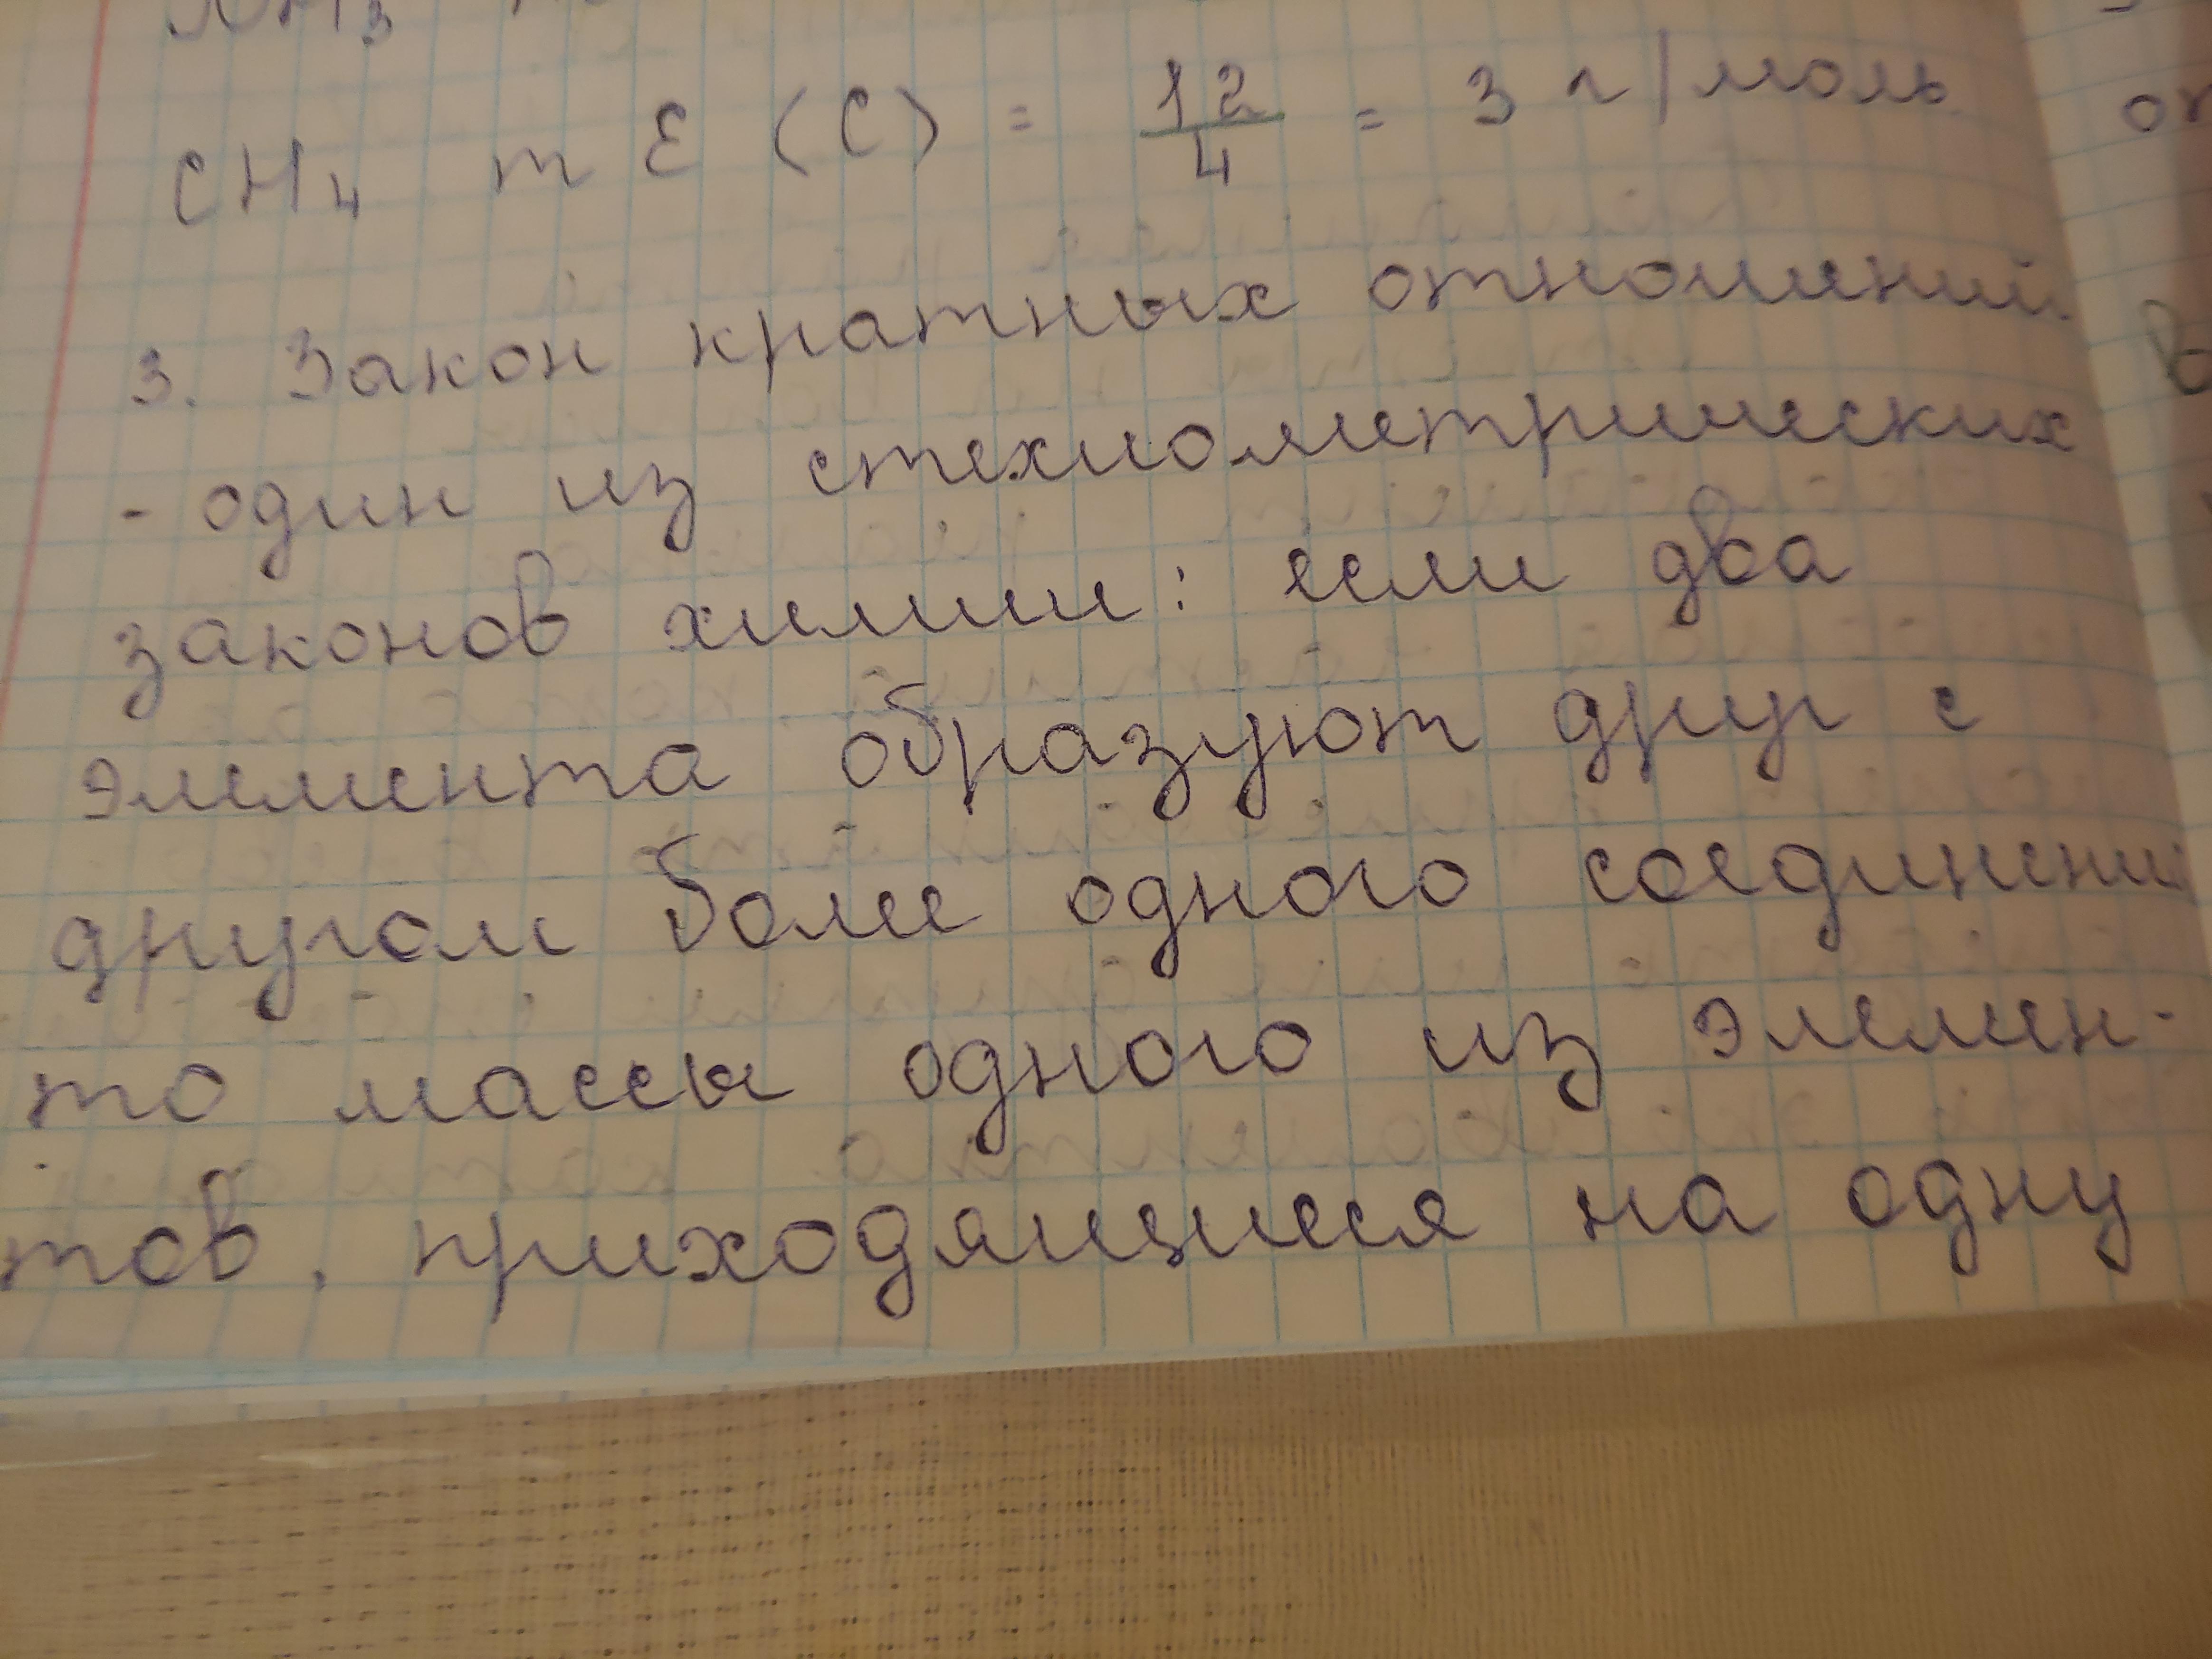 NH3
CH4 m E (C) = 12/4 = 3 г/моль
3. Закон кратных отношений
- один из стехиометрических
законов химии: если два
элемента образуют друг с
другом более одного соединений
то массы одного из элемен-
тов, приходящиеся на одну